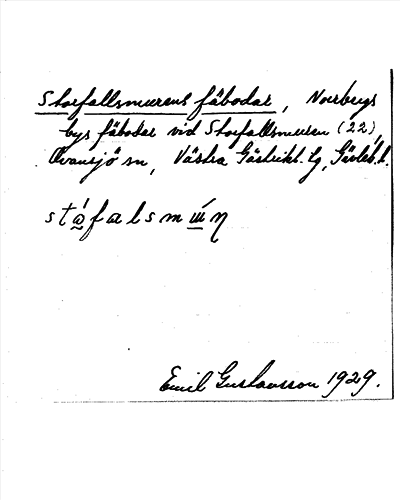 Storfallsmurens fäbodar, Norbergs
bys fäbodar vid Storfallsmuren (22),
Ovansjö sn, Västra Gästrikl. tg, Gävleb. l.
stá̰falsmɯ́ŋ
Emil Gustavsson 1929.